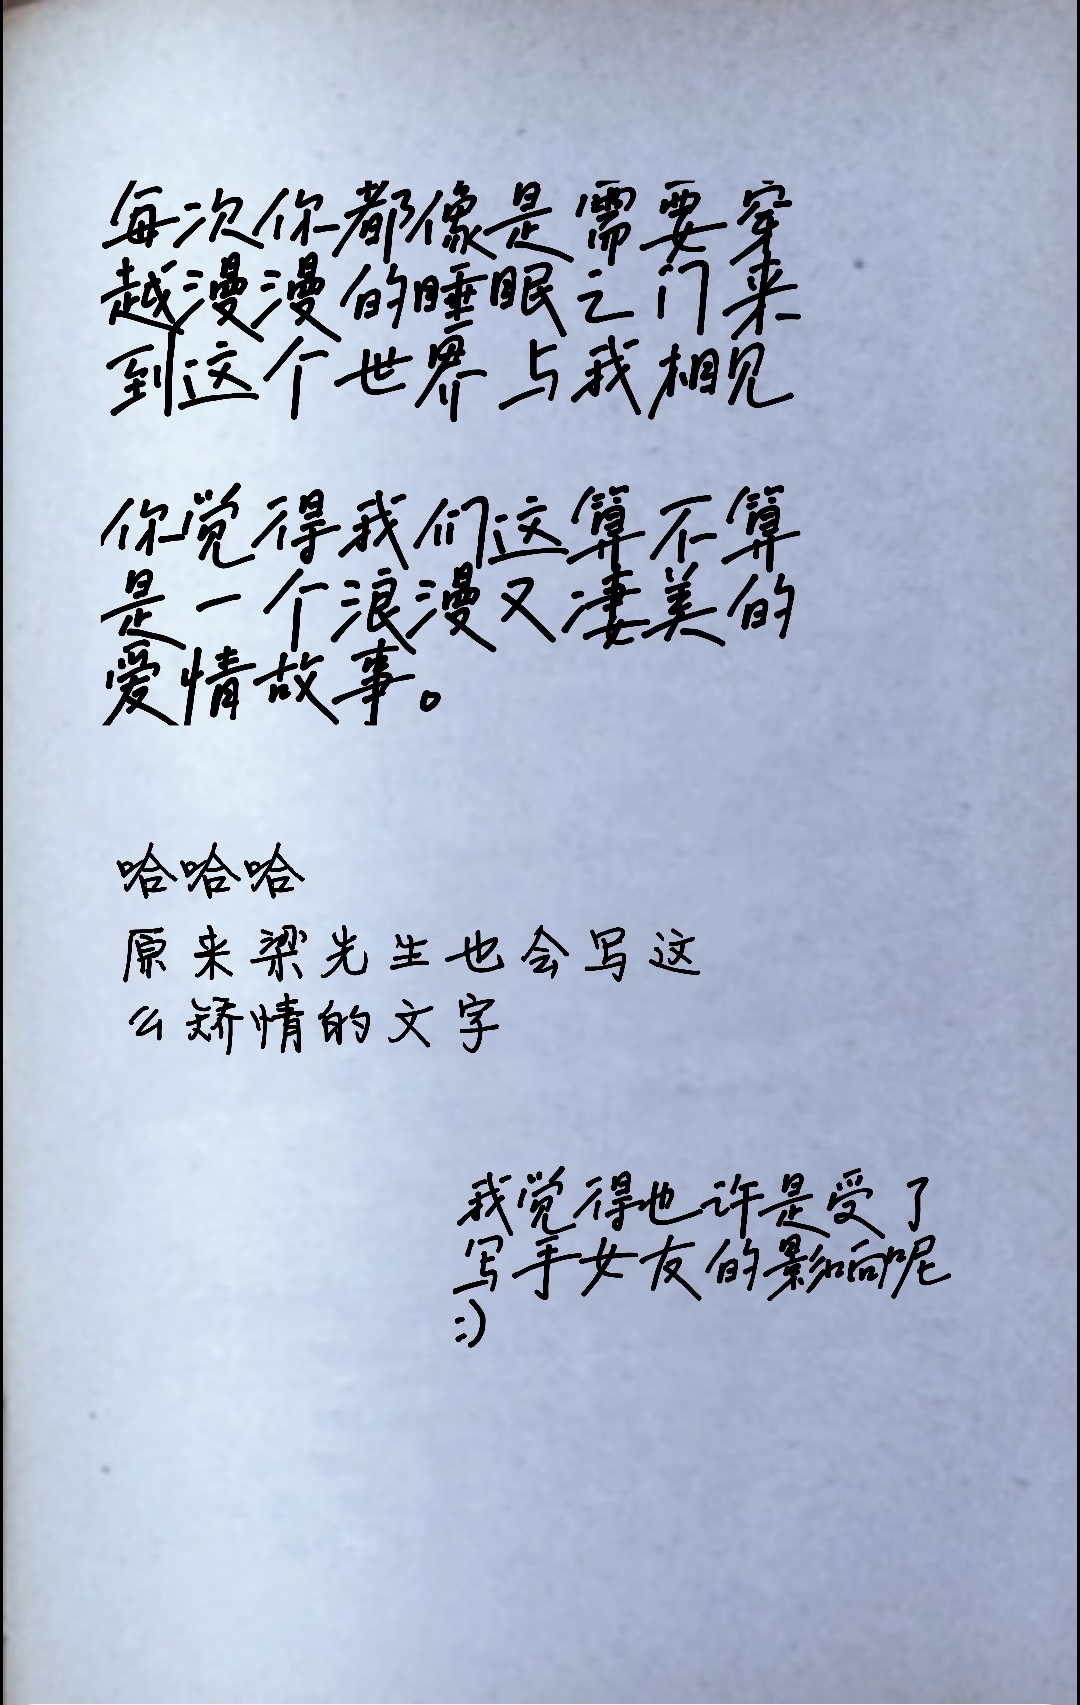 每次你都像是需要穿
越漫漫的睡眠之门来
到这个世界与我相见
你觉得我们这算不算
是一个浪漫又凄美的
爱情故事。
哈哈哈
原来梁先生也会写这
么矫情的文字
我觉得也许是受了
写手女友的影响呢
:)